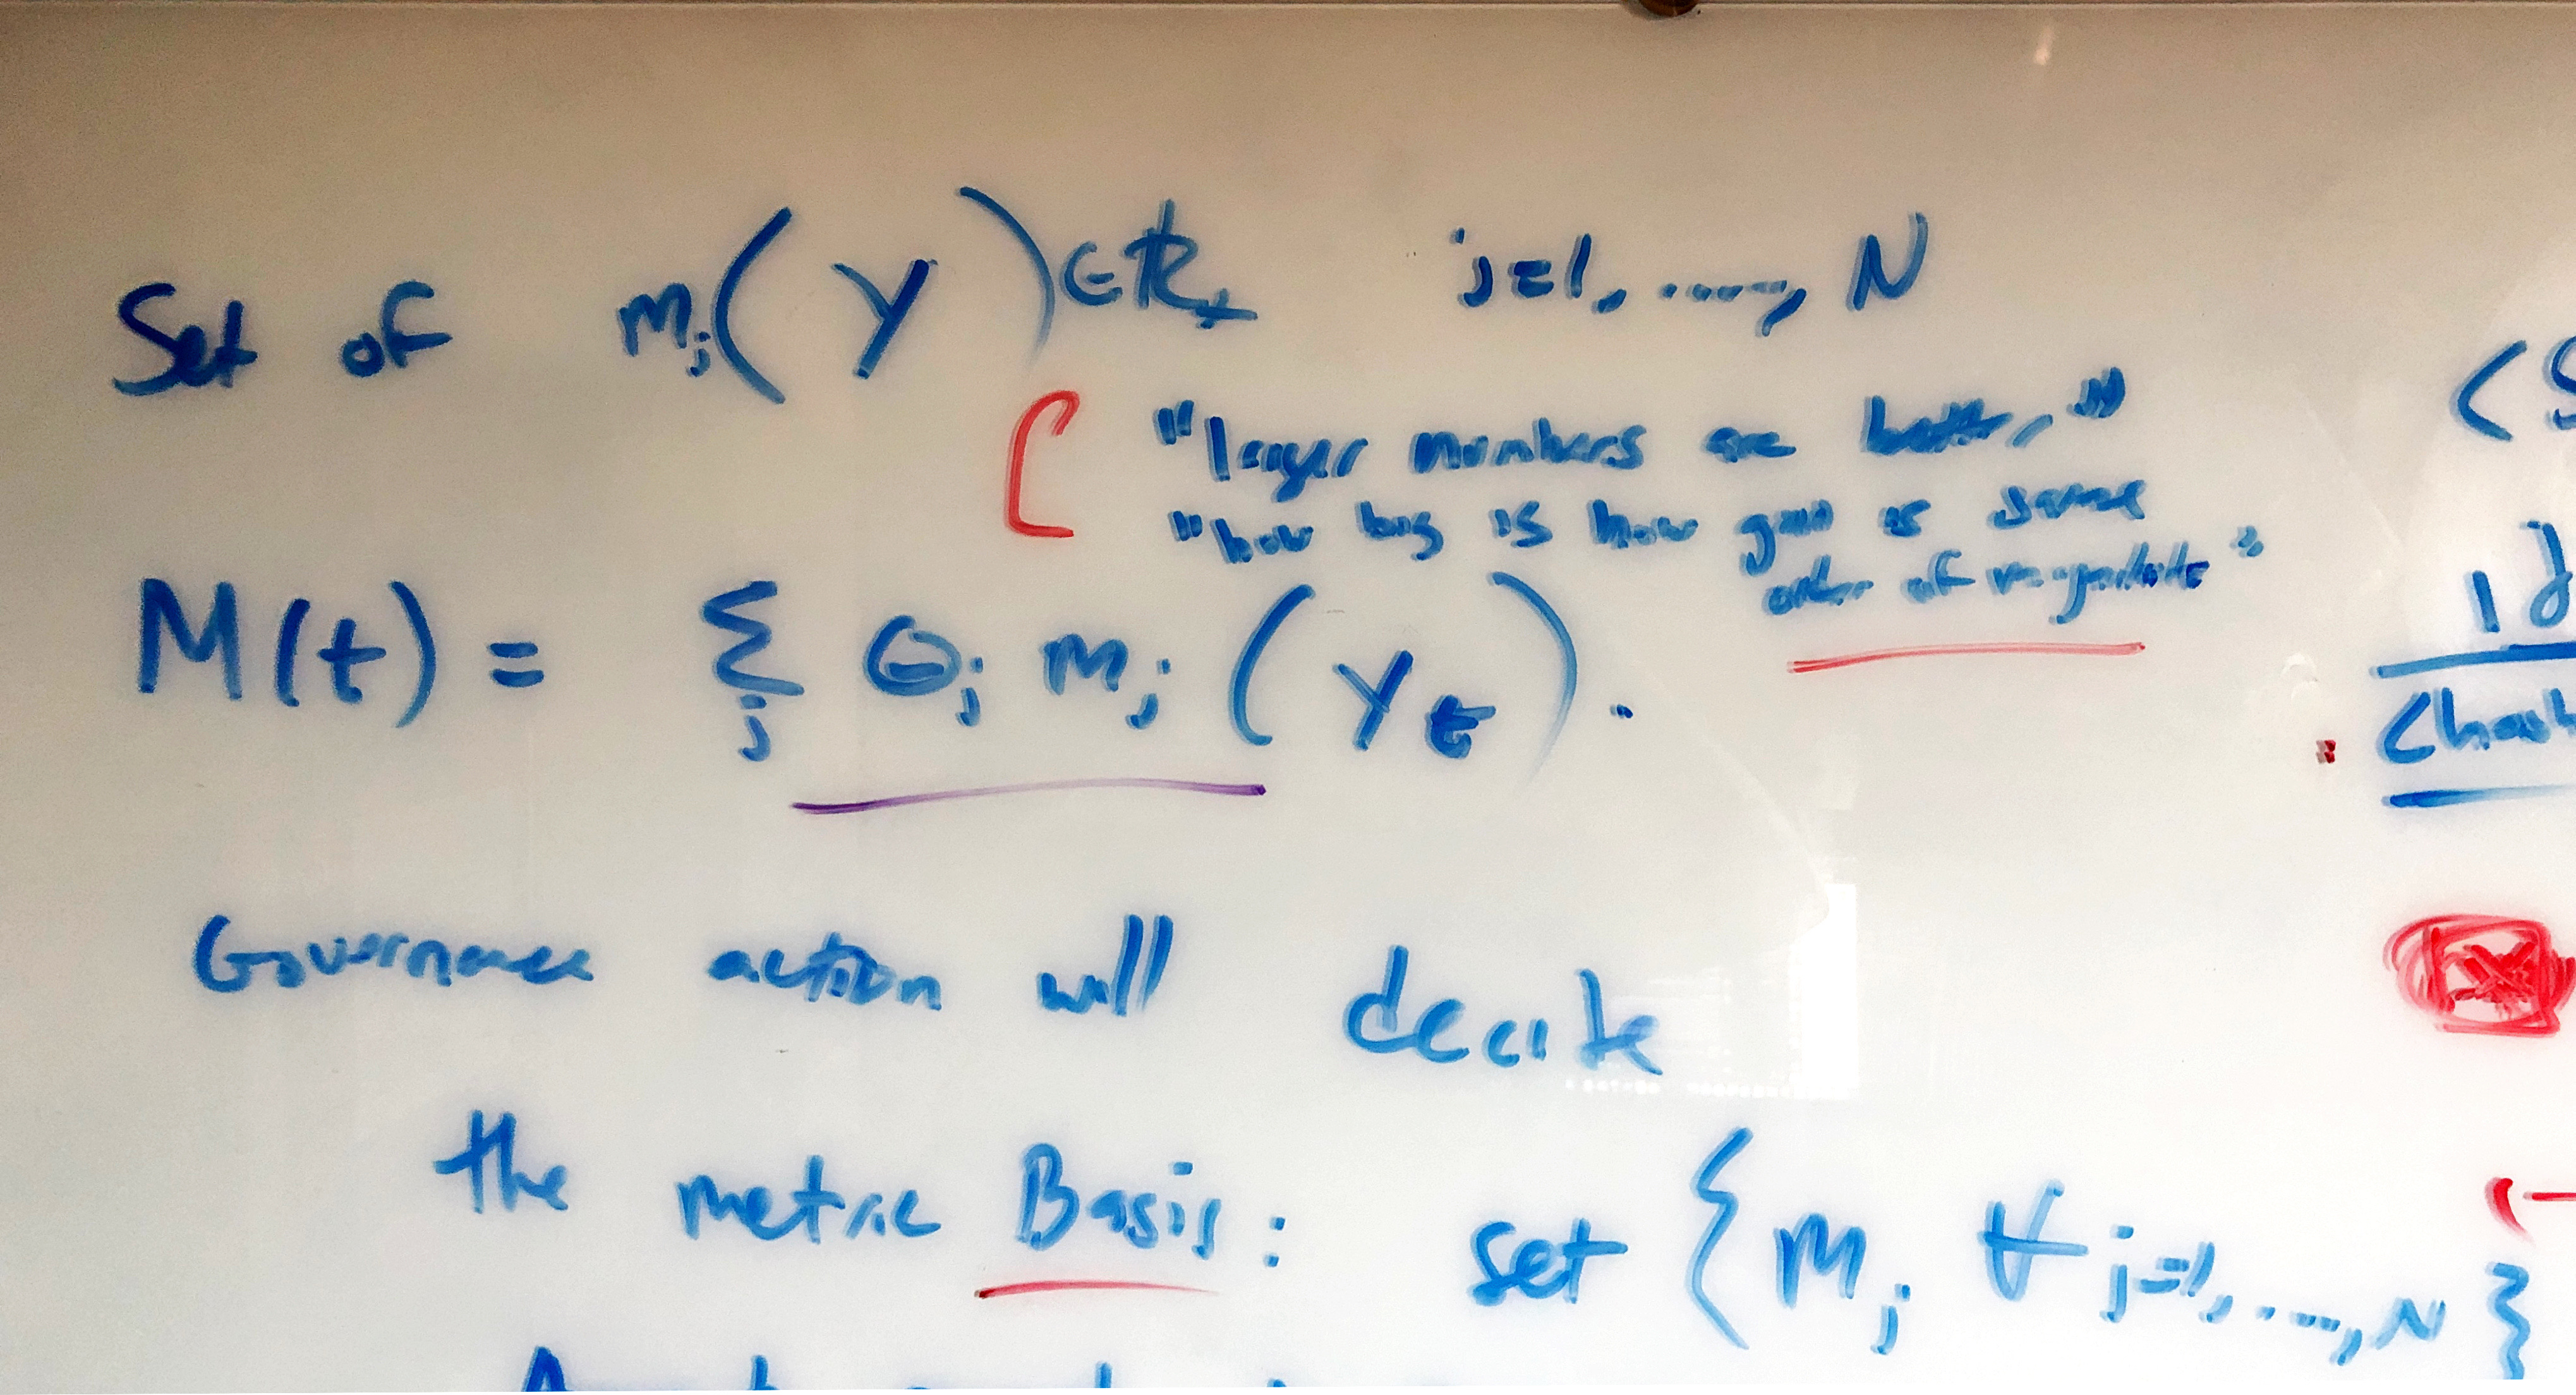 Set of m_j(y) ∈ ℝ_+ j=1, ....., N
"larger numbers are better,"
"how big is how good is same
order of magnitude"
M(t) = Σ_j Θ_j m_j (y_t).
Governance action will decide
the metric Basis: set {m_j ∀ j=1, ...., N}